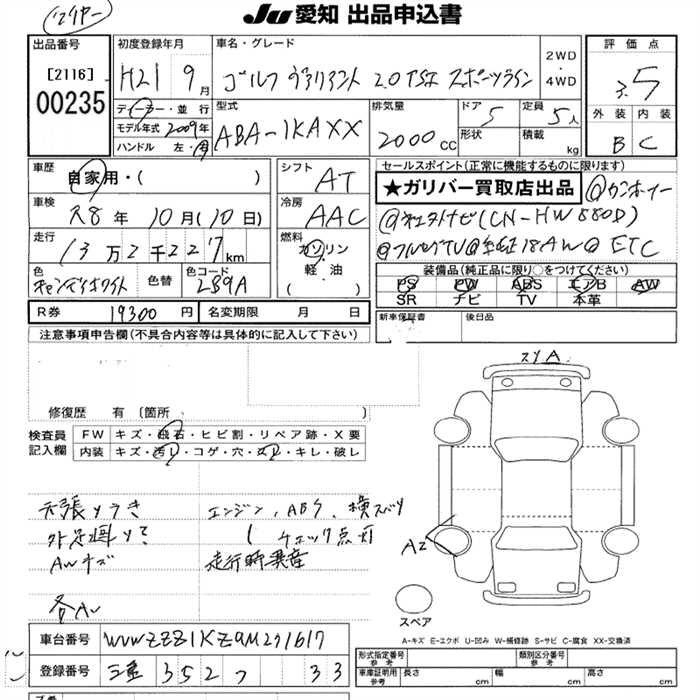 Ju 愛知 出品申込書
出品番号
[2116]
00235
初度登録年月
H21 9月
ディーラー・並行
モデル年式 2009年
ハンドル 左・右
車名・グレード
ゴルフ ヴァリアント 2.0 TSI スポーツライン
2WD
・
4WD
型式
ABA-1KAXX
排気量
2000 CC
ドア
5
形状
定員
5人
積載
kg
評価点
3.5
外装 内装
B C
車歴
自家用・( )
車検
R8年 10月(10日)
走行
13万2千227km
色
キャンディホワイト
色替
色コード
LB9A
シフト
AT
冷房
AAC
燃料
ガソリン
・
軽油
( )
セールスポイント(正常に機能するものに限ります)
★ガリバー買取店出品
@ワンオーナー
@社外ナビ(CN-HW880D)
@フルセグTV@純正18AW@ETC
装備品(純正品に限り○をつけてください)
PS PW ABS エアB AW
SR ナビ TV 本革
R券
19300円
名変期限 月 日
新車保証書
後日品
注意事項申告欄(不具合内容等は具体的に記入して下さい)
修復歴 有 〔箇所 〕
検査員
記入欄
FW キズ・飛石・ヒビ割・リペア跡・X要
内装 キズ・汚レ・コゲ・穴・スレ・キレ・破レ
天張りうき
AWキズ
エンジン、ABS、横スベリ
チェック点灯
走行時異音
スリA
A2
スペア
A-キズ E-エクボ U-凹み W-補修跡 S-サビ C-腐食 XX-交換済
車台番号
WVWZZZ1KZ9M271617
登録番号
三重 352 33
形式指定番号
参考
類別区分番号
参考
車庫証明用
参考
長さ cm
幅 cm
高さ cm